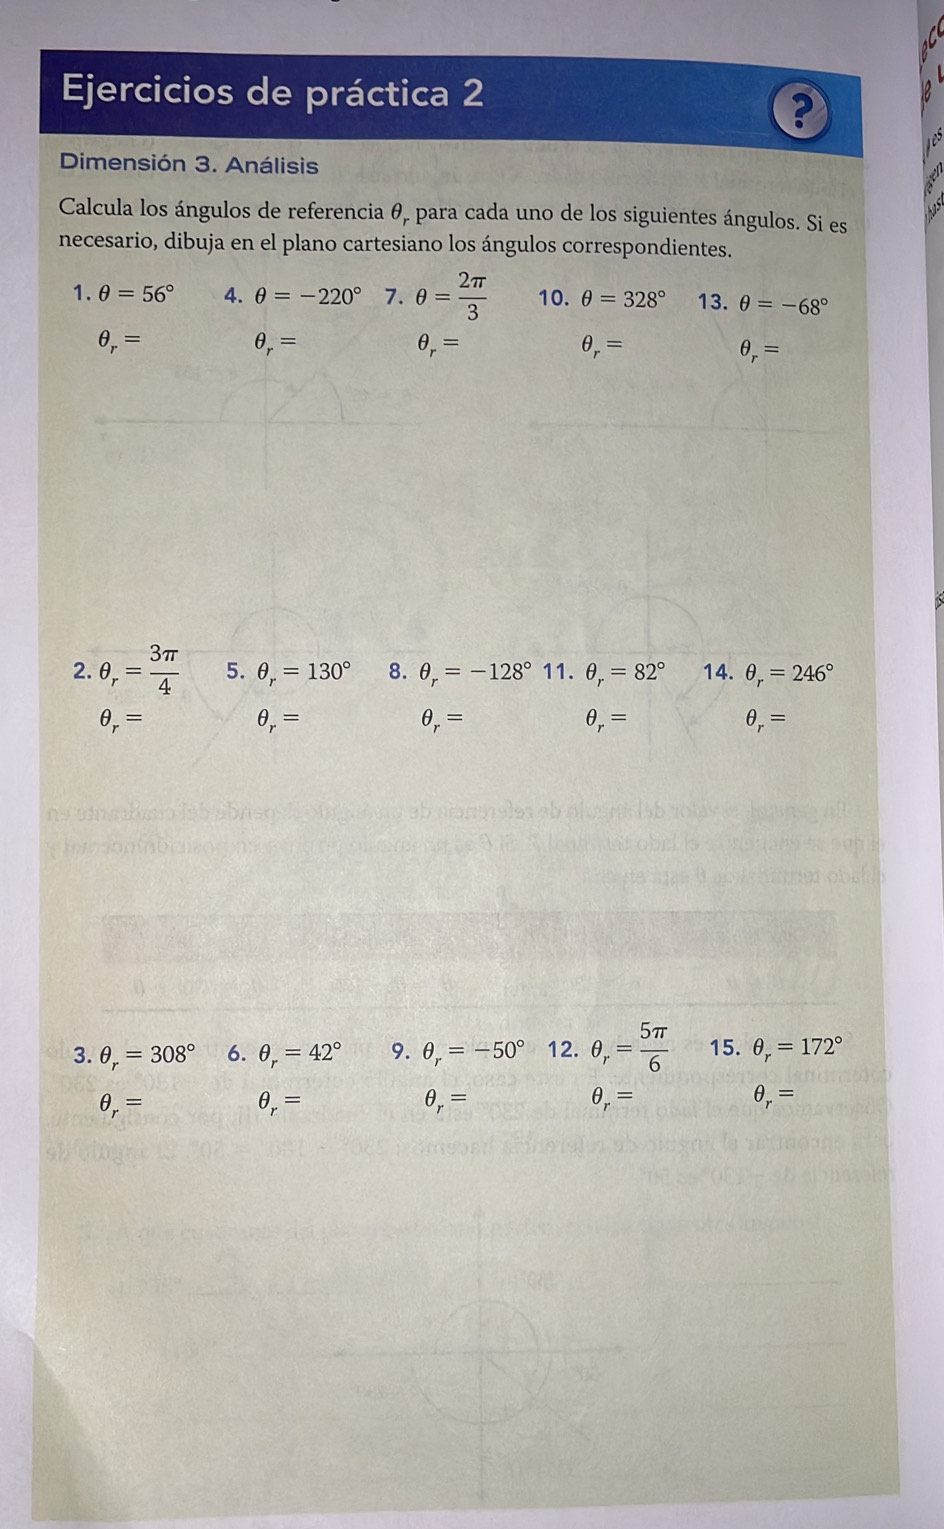 Ejercicios de práctica 2
?
Dimensión 3. Análisis
Calcula los ángulos de referencia θr para cada uno de los siguientes ángulos. Si es
necesario, dibuja en el plano cartesiano los ángulos correspondientes.
1. θ = 56° 4. θ = −220° 7. θ = 2π/3 10. θ = 328° 13. θ = −68°
θr = θr = θr = θr = θr =
2. θr = 3π/4 5. θr = 130° 8. θr = −128° 11. θr = 82° 14. θr = 246°
θr = θr = θr = θr = θr =
3. θr = 308° 6. θr = 42° 9. θr = −50° 12. θr = 5π/6 15. θr = 172°
θr = θr = θr = θr = θr =